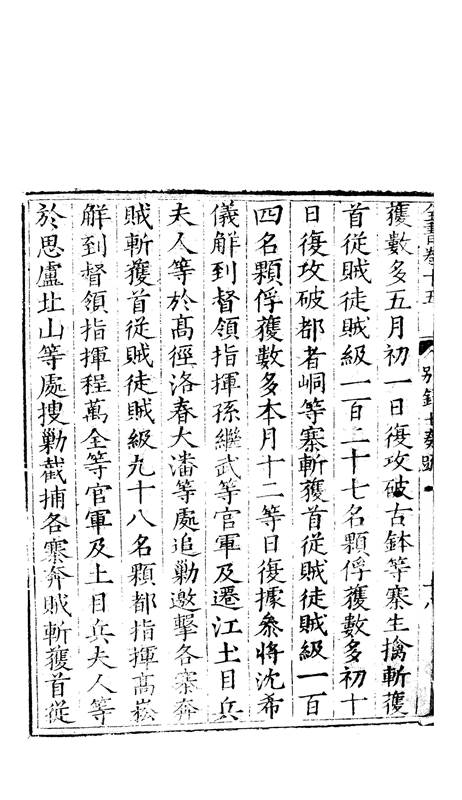 全書卷十五 別錄七奏疏 十八
獲數多五月初一日復攻破古鉢等寨生擒斬獲
首從賊徒賊級一百二十七名顆俘獲數多初十
日復攻破都者峒等寨斬獲首從賊徒賊級一百
四名顆俘獲數多本月十二等日復據叅將沈希
儀解到督領指揮孫繼武等官軍及遷江土目兵
夫人等於高徑洛春大潘等處追勦邀擊各寨奔
賊斬獲首從賊徒賊級九十八名顆都指揮高崧
解到督領指揮程萬全等官軍及土目兵夫人等
於思盧北山等處搜勦截捕各寨奔賊斬獲首從